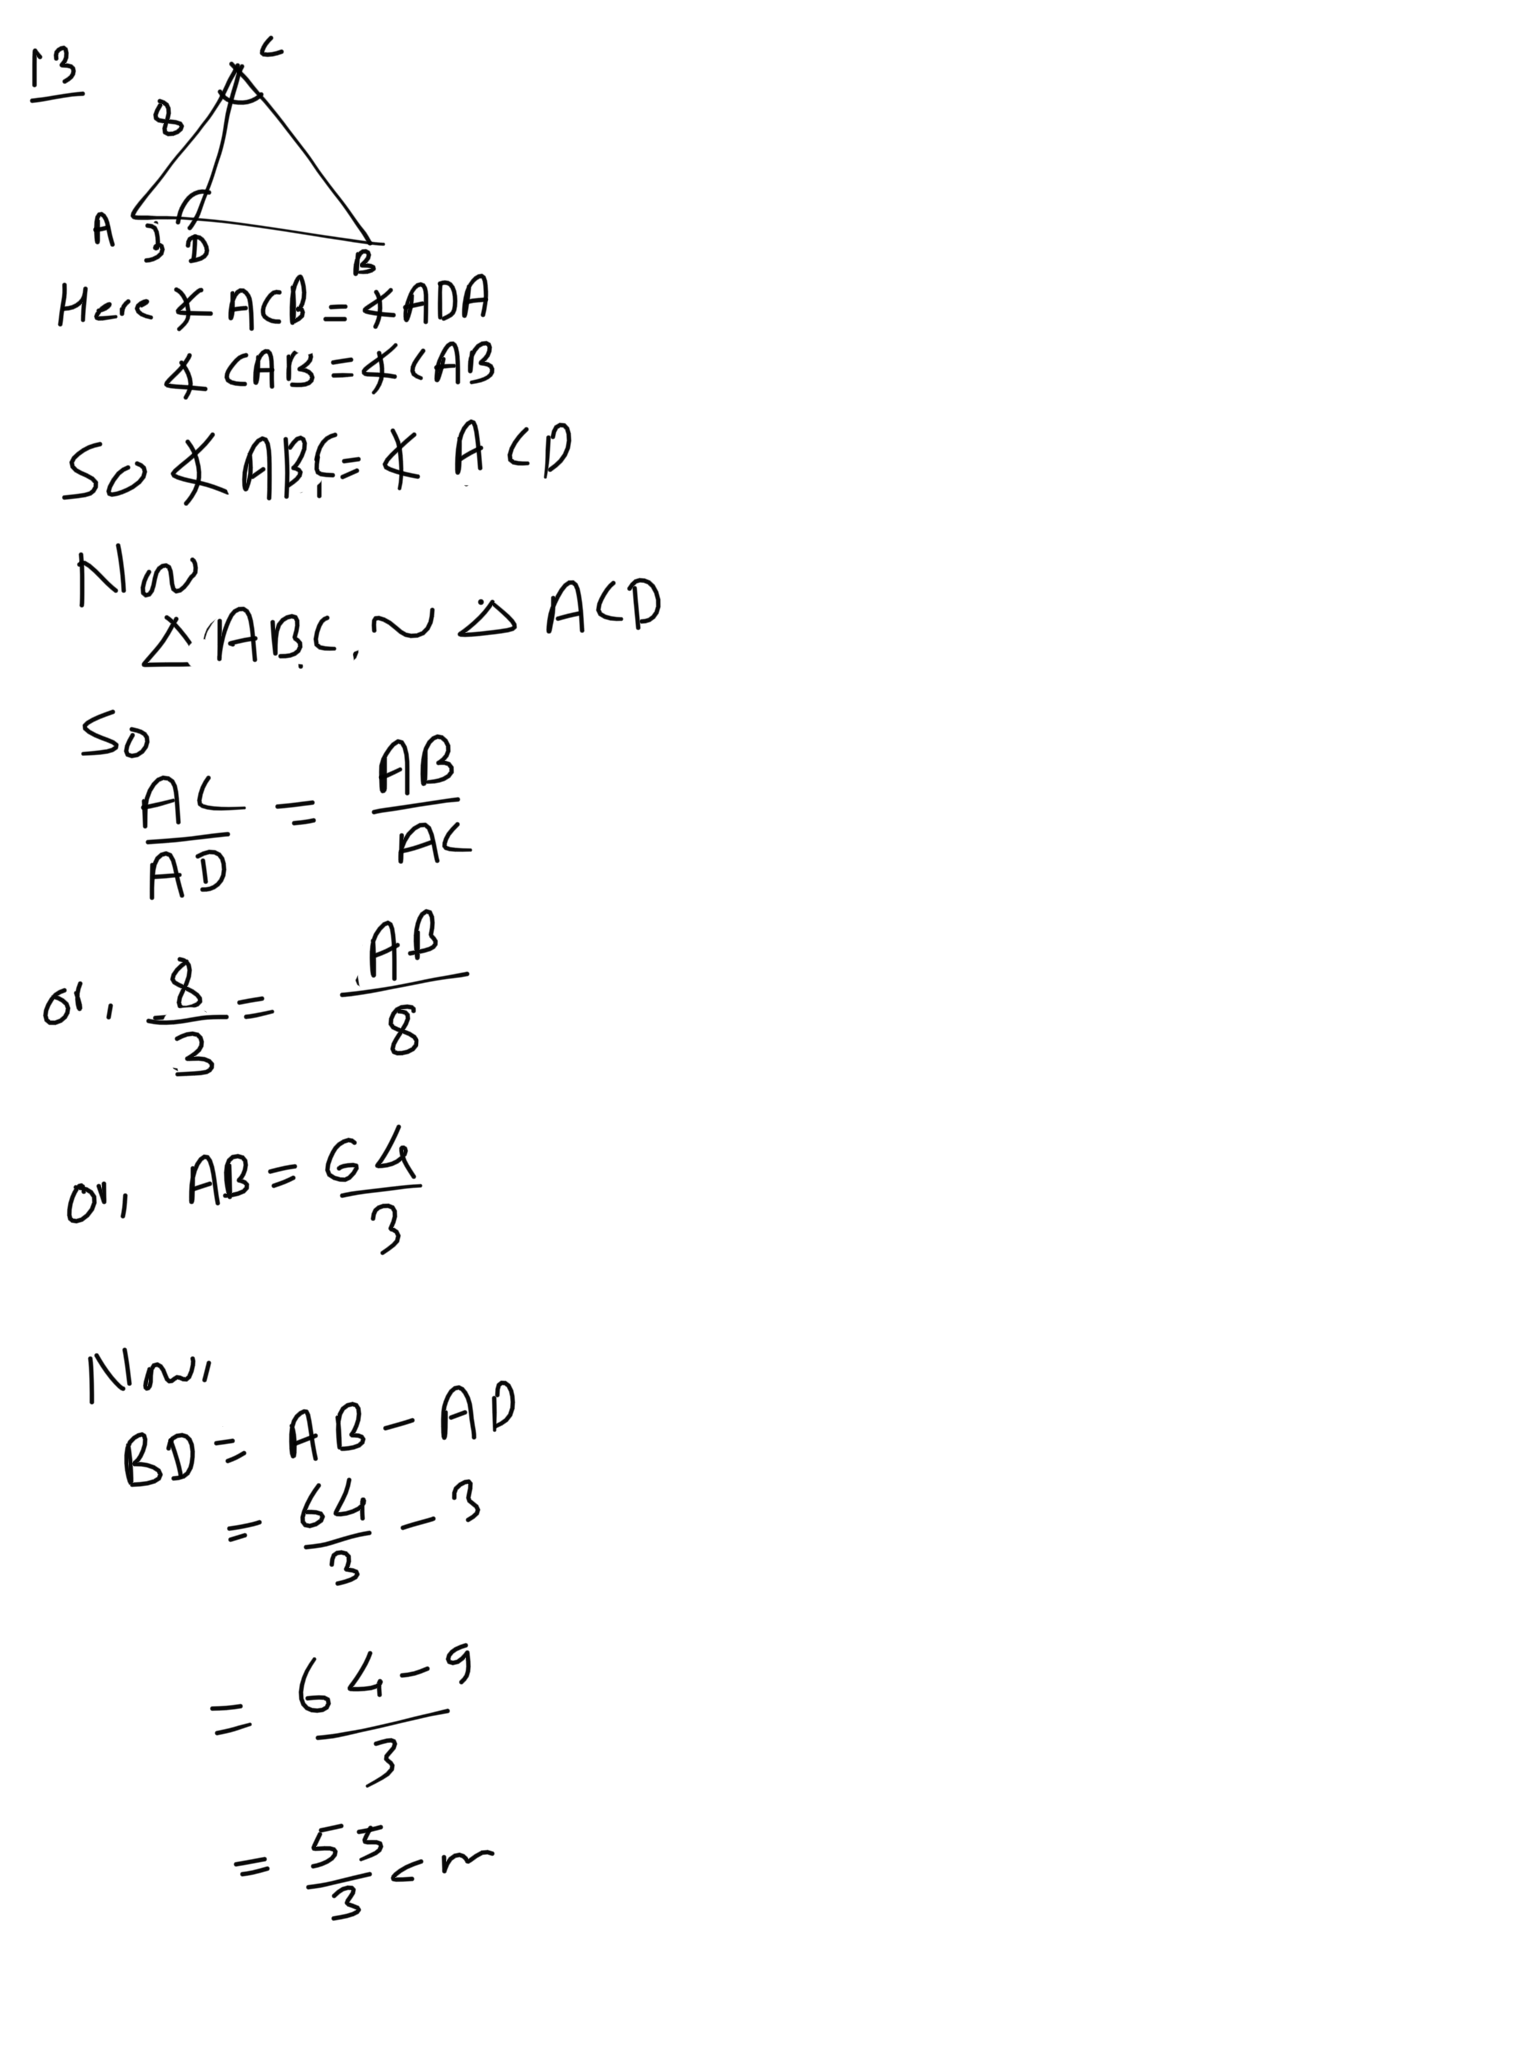 13
C
8
A 3 D
B
Here ∡ ACB = ∡ ADA
∡ CAB = ∡ CAB
So ∡ ABC = ∡ ACD
Now
△ ABC ~ △ ACD
So
AC/AD = AB/AC
or, 8/3 = AB/8
or, AB = 64/3
Now,
BD = AB - AD
= 64/3 - 3
= (64-9)/3
= 55/3 cm